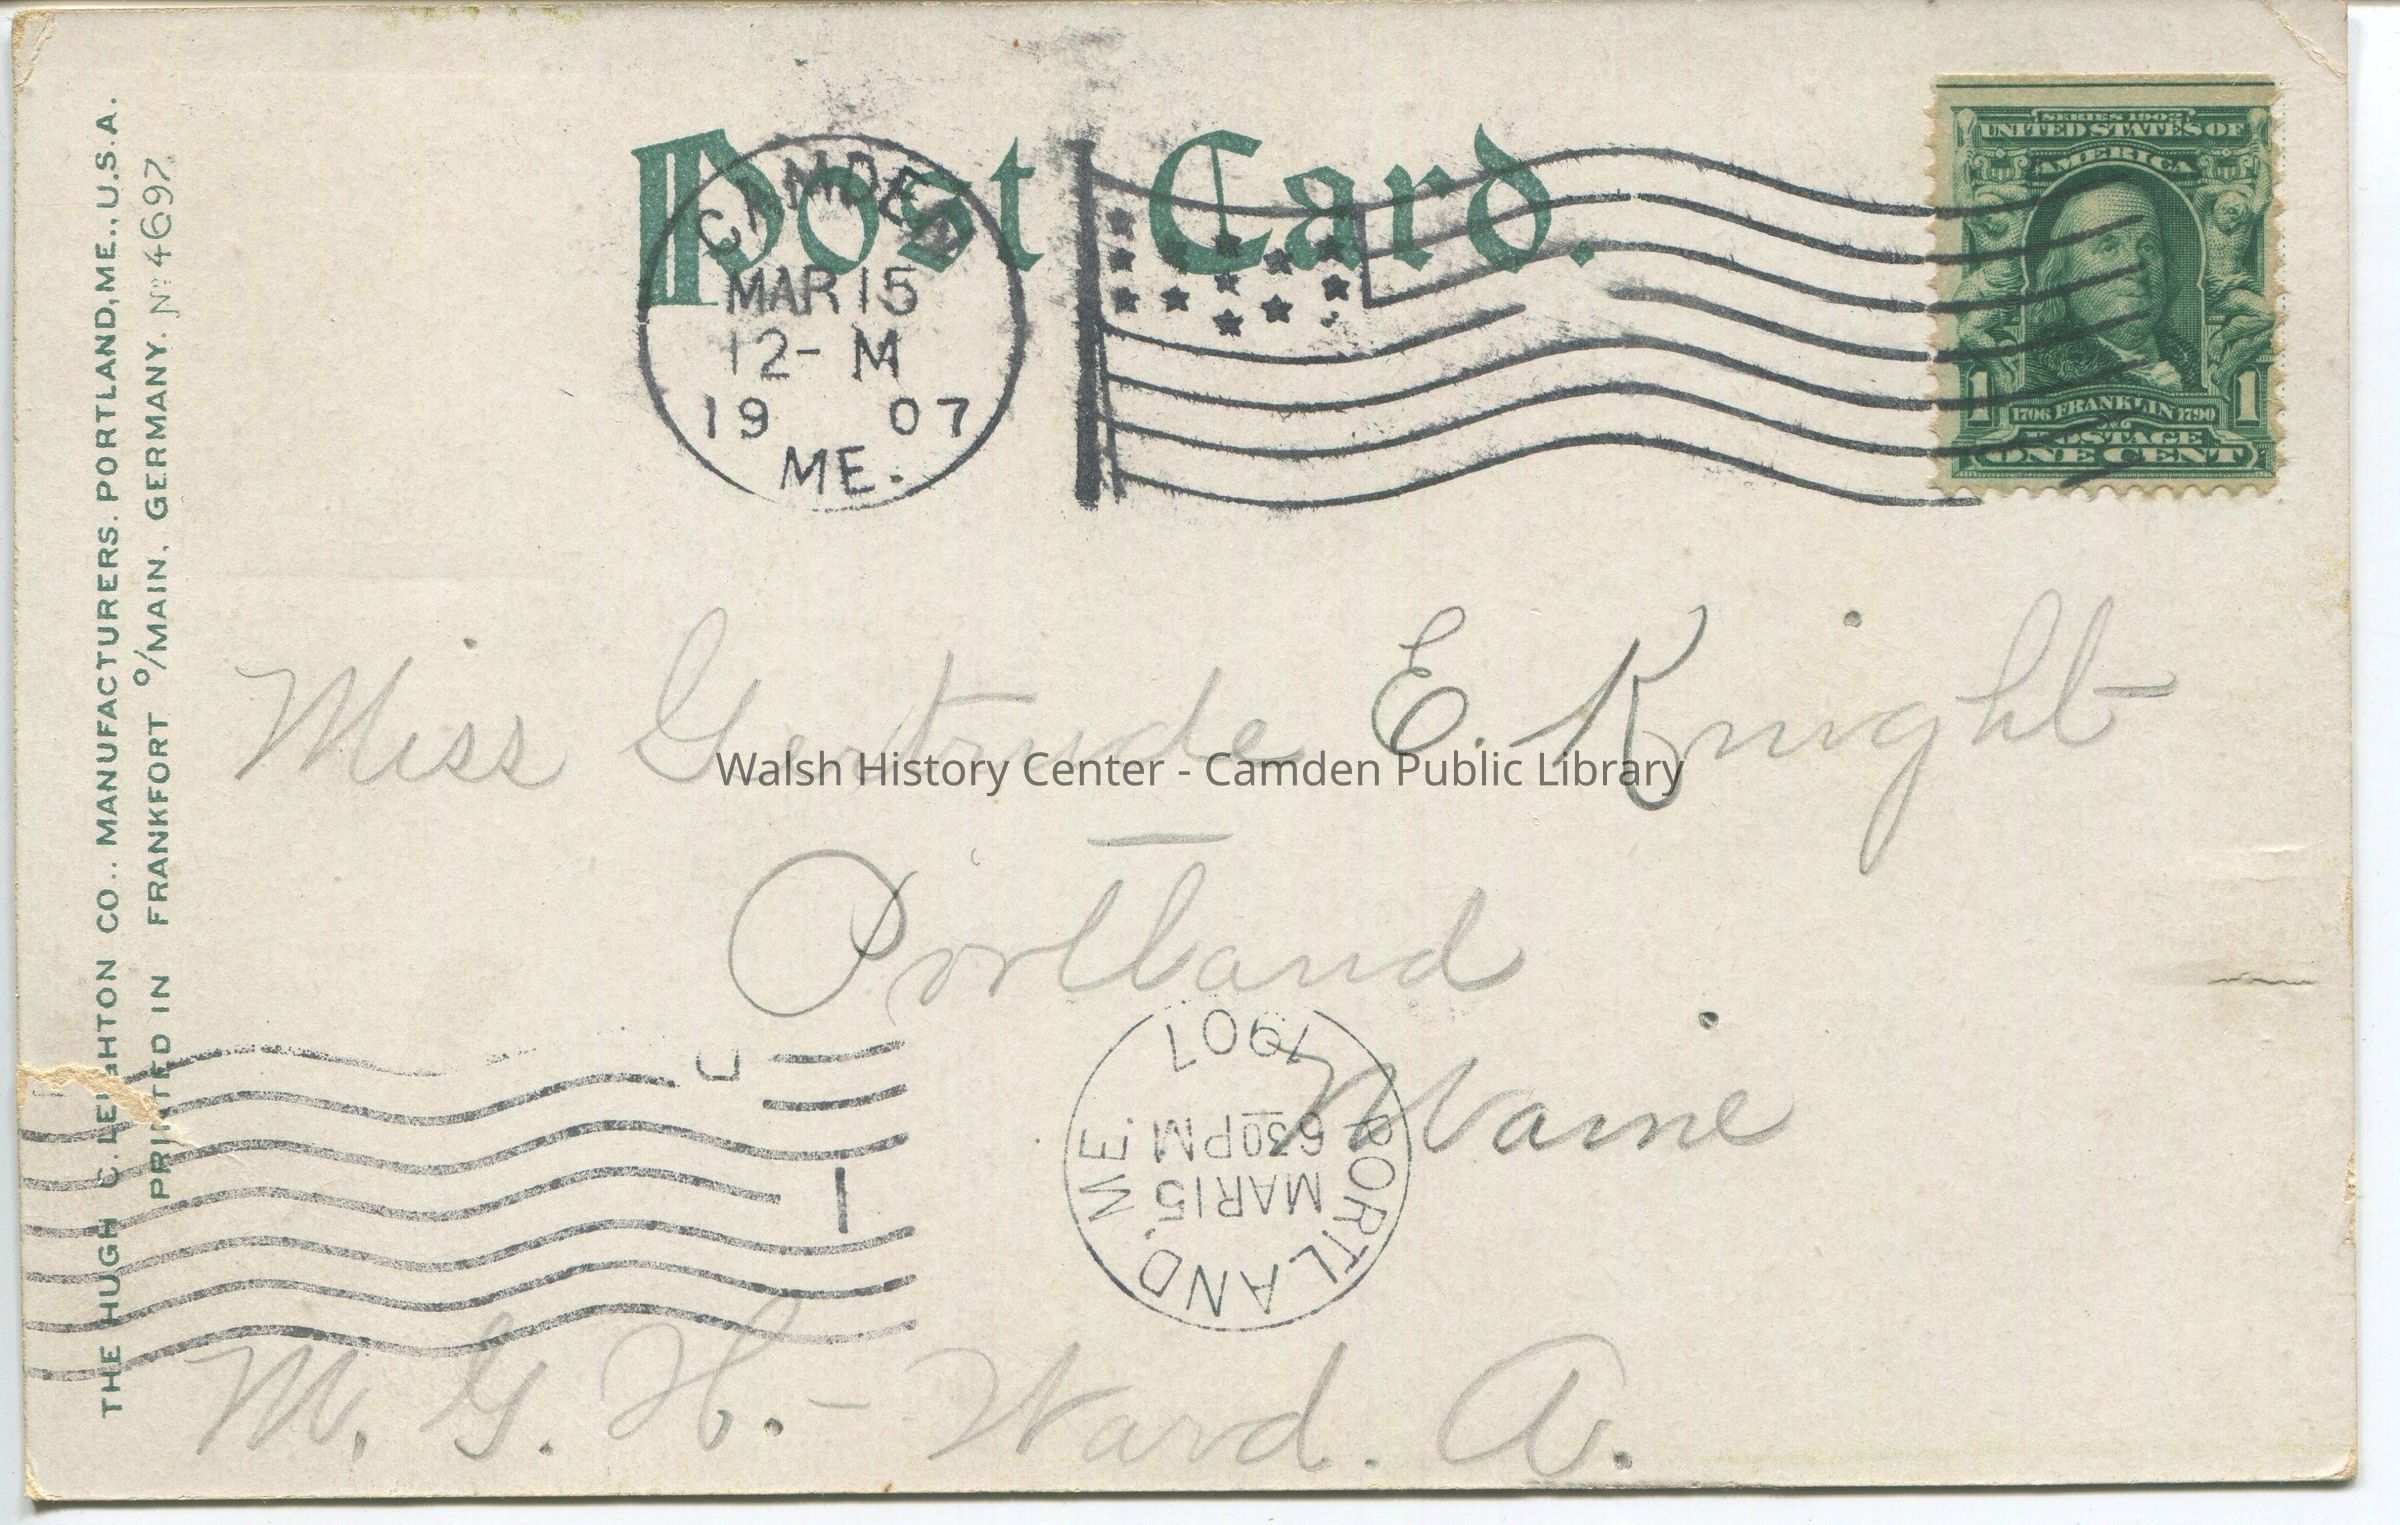 Post Card.
CAMDEN
MAR 15
12- M
19 07
ME.
SERIES 1902
UNITED STATES OF
AMERICA
1 1
1706 FRANKLIN 1790
POSTAGE
ONE CENT
THE HUGH C. LEIGHTON CO., MANUFACTURERS, PORTLAND, ME., U.S.A.
PRINTED IN FRANKFORT o/MAIN, GERMANY. No 4697
Miss Gertrude E. Knight
Walsh History Center - Camden Public Library
Portland
Maine
PORTLAND, ME.
MAR 15
630 PM
1907
M. G. H. - Ward. A.